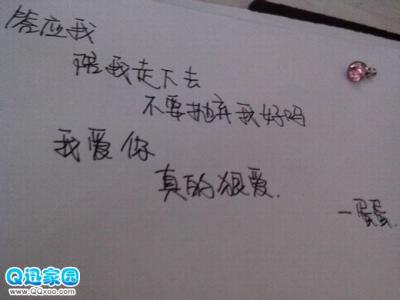 答应我
陪我走下去
不要抛弃我好吗
我爱你
真的狠爱.
—蛋蛋.
Q迅家园
www.QQxoo.com